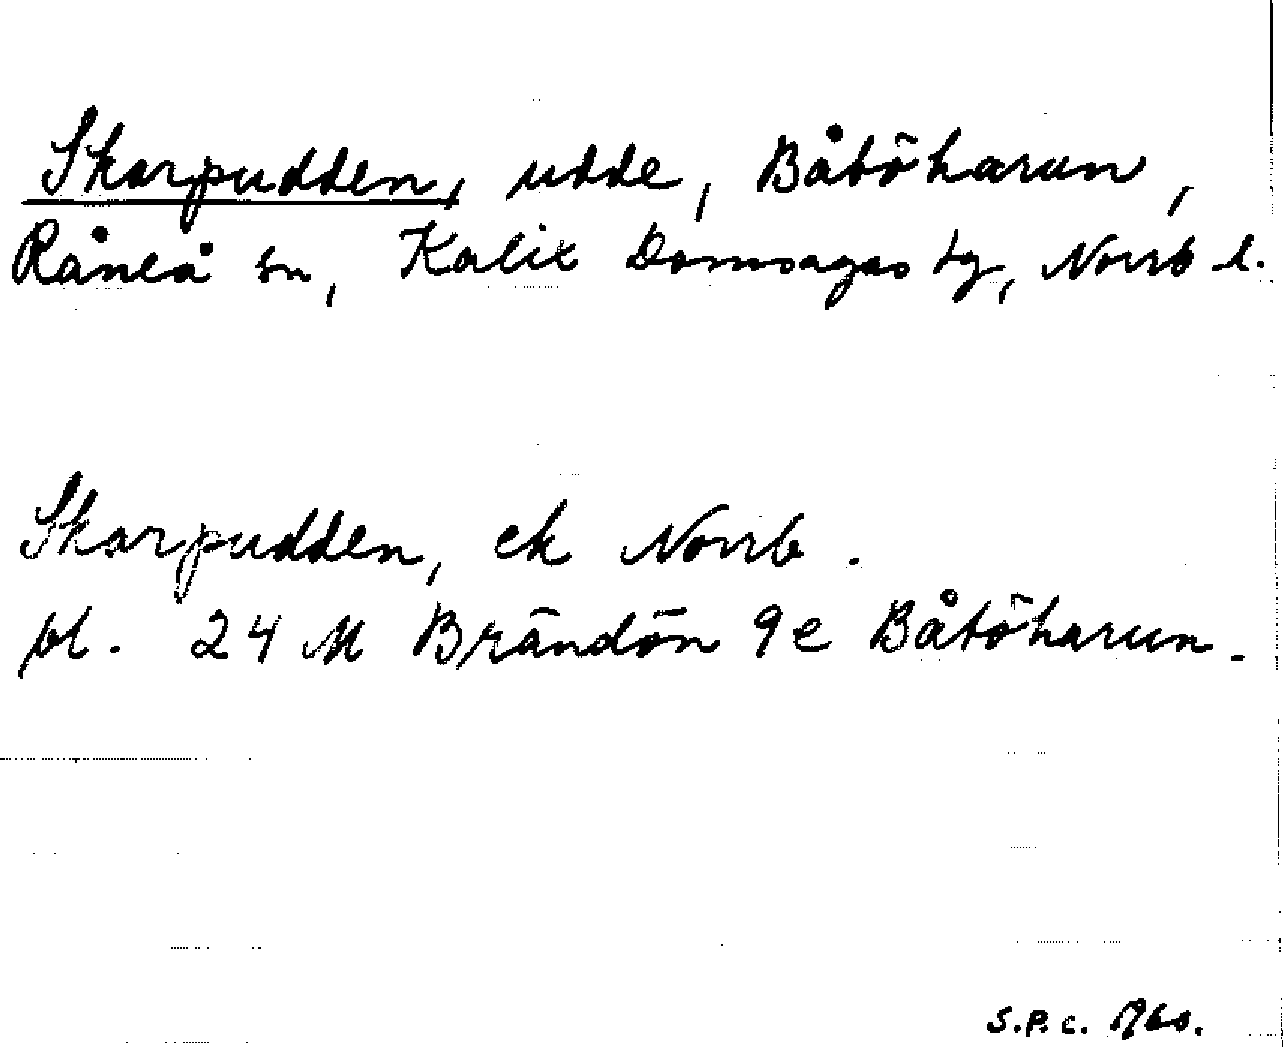 Skarpudden, udde, Båtöharun,
Råneå sn, Kalix Domsagas tg, Norrb l.
Skarpudden, ek Norrb.
bl. 24 M Brändön 9e Båtöharun.
S.P.C. 1960.